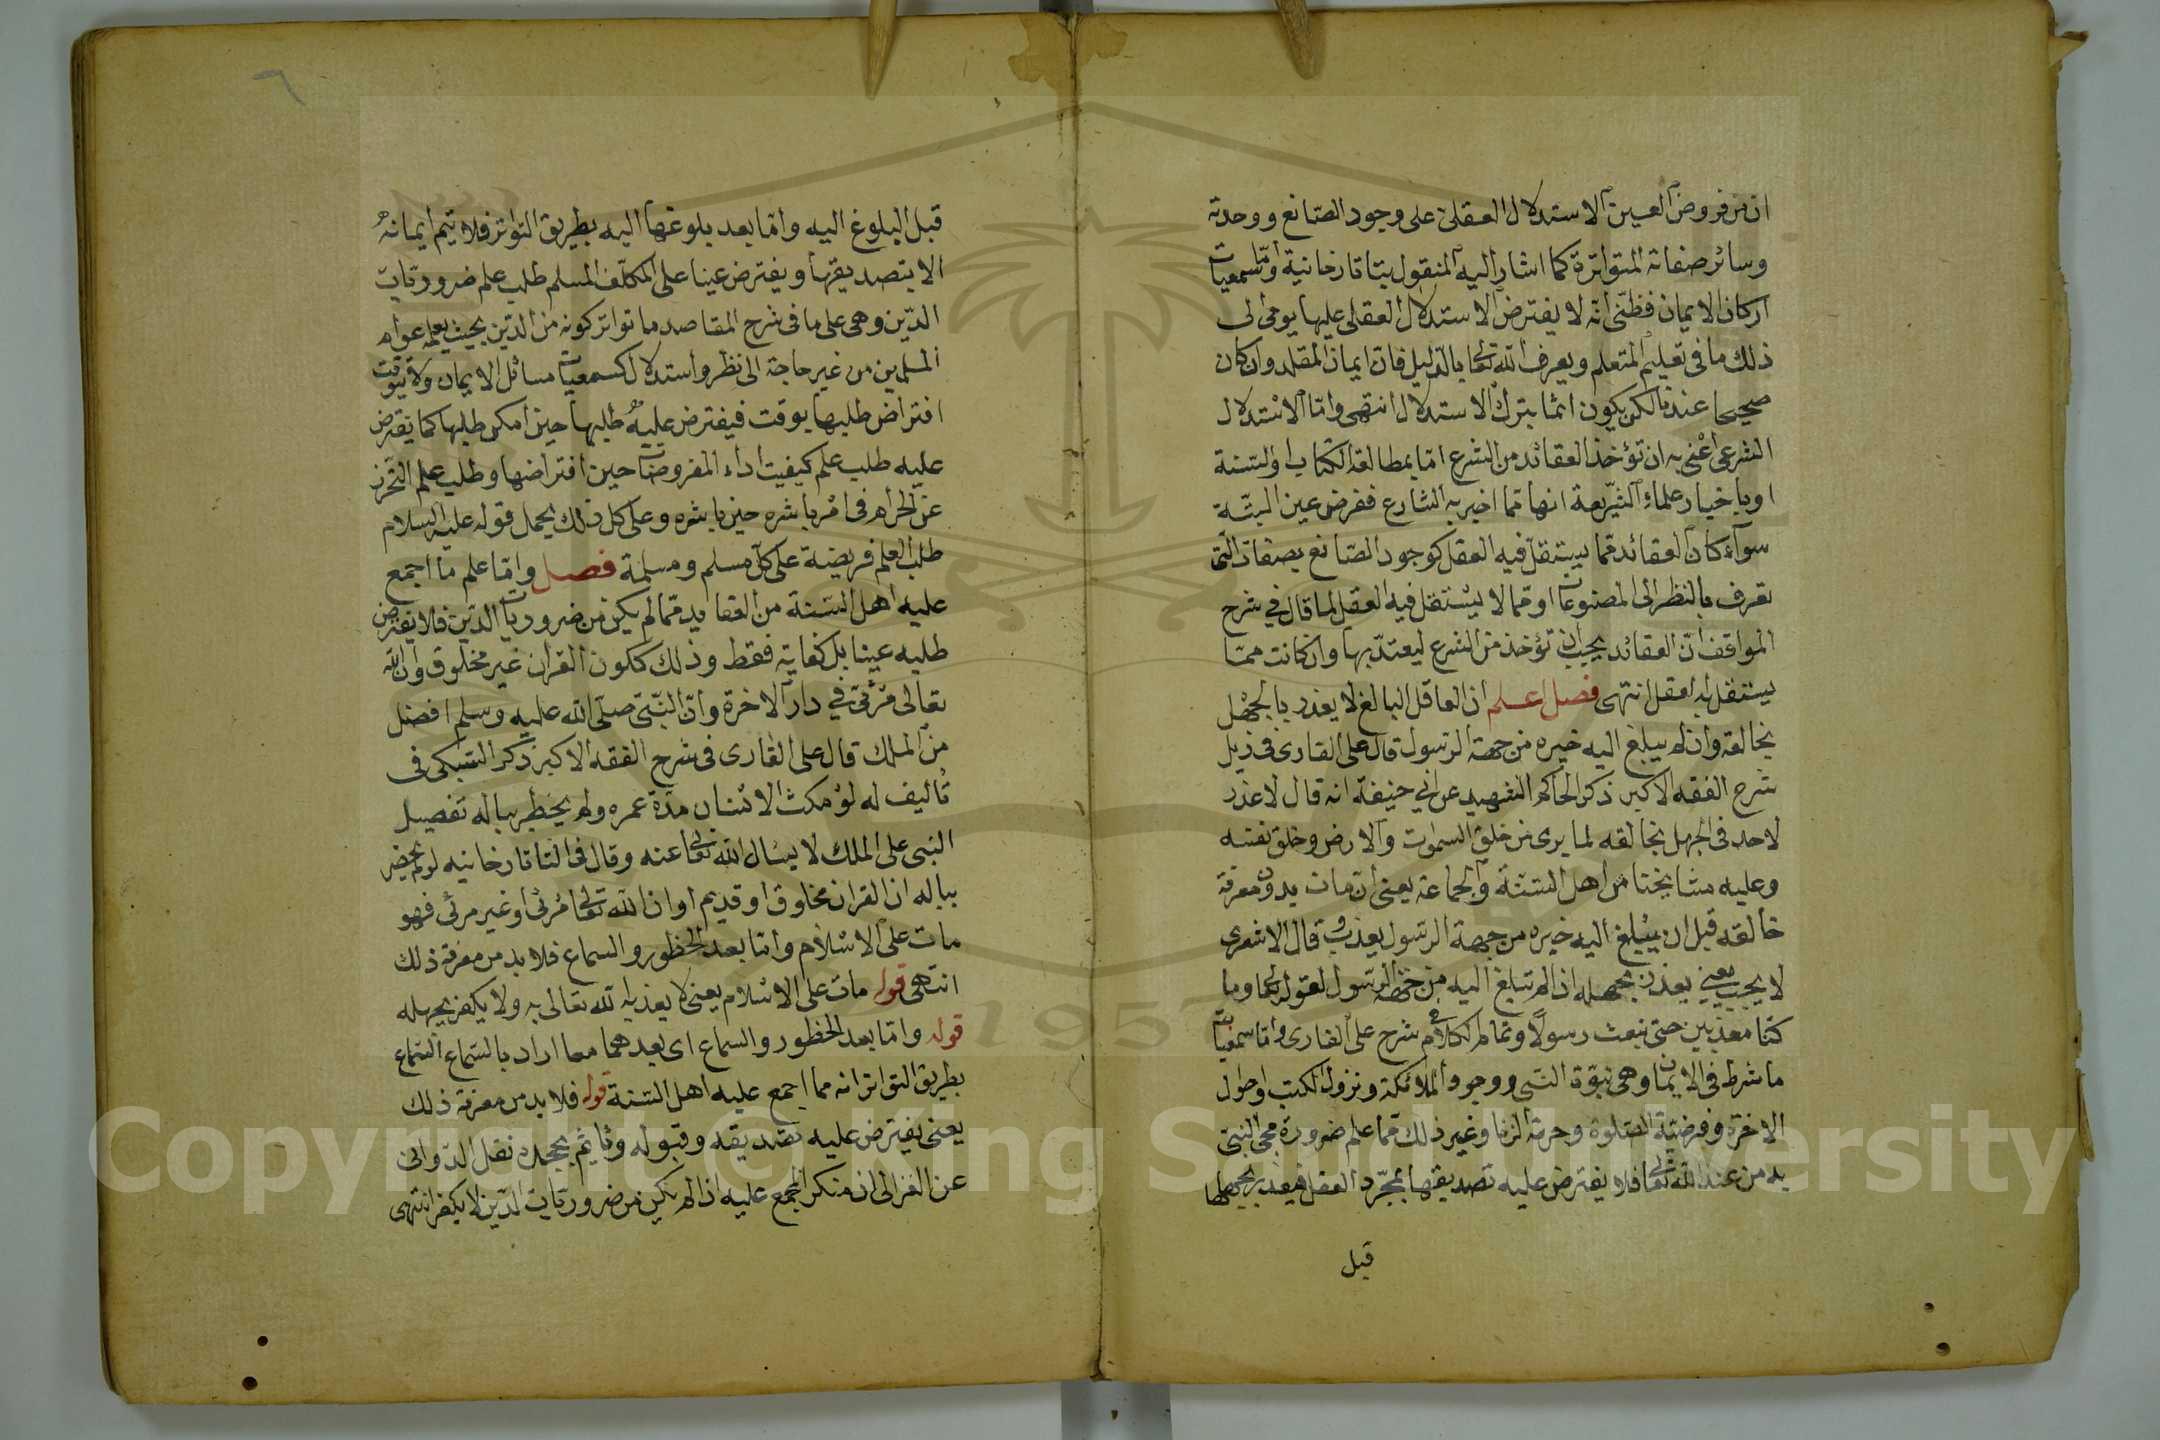 ان من فروض العين الاستدلال العقلى على وجود الصانع ووحدته
وسائر صفاته المتواترة كما اشار اليه المنقول بتاتارخانية واما سمعيات
اركان الايمان فظنى انه لا يفترض الاستدلال العقلى عليها يومى الى
ذلك ما فى تعليم المتعلم ويعرف الله تعالى بالدليل فان ايمان المقلد وان كان
صحيحا عندنا لكن يكون اثما بترك الاستدلال انتهى واما الاستدلال
الشرعى اعنى به ان تؤخذ العقائد من الشرع اما بمطالعة الكتاب والسنة
او باخبار علماء الشريعة انها مما اخبر به الشارع ففرض عين البتة
سواء كان العقائد مما يستقل فيه العقل كوجود الصانع بصفاته التى
تعرف بالنظر الى المصنوعات او مما لا يستقل فيه العقل لما قال فى شرح
المواقف ان العقائد يجب ان تؤخذ من الشرع ليعتد بها وان كانت مما
يستقل به العقل انتهى فصل اعلم ان العاقل البالغ لا يعذر بالجهل
بخالقه وان لم يبلغ اليه خبره من جهة الرسول قال على القارى فى ذيل
شرح الفقه الاكبر ذكر الحاكم الشهيد عن ابى حنيفة انه قال لا عذر
لاحد فى الجهل بخالقه لما يرى من خلق السموات والارض وخلق نفسه
وعليه مشايخنا من اهل السنة والجماعة يعنى ان مات بدون معرفة
خالقه قبل ان يبلغ اليه خبره من جهة الرسول يعذب وقال الاشعرى
لا يجب يعنى يعذر بجهله اذا لم تبلغ اليه من جهة الرسول لقوله تعالى وما
كنا معذبين حتى نبعث رسولا وتمام الكلام فى شرح على القارى واما سمعيات
ما شرط فى الايمان وهى نبوة النبى ووجود الملائكة ونزول الكتب واحوال
الاخرة وفرضية الصلوة وحرمة الزنا وغير ذلك مما علم ضرورة مجئ النبى
به من عند الله تعالى فلا يفترض عليه تصديقها بمجرد العقل فيعذر بجهلها
قبل
قبل البلوغ اليه واما بعد بلوغها اليه بطريق التواتر فلا يتم ايمانه
الا بتصديقها ويفترض عينا على المكلف المسلم طلب علم ضروريات
الدين وهى على ما فى شرح المقاصد ما تواتر كونه من الدين بحيث يعلمه عوام
المسلمين من غير حاجة الى نظر واستدلال كسمعيات مسائل الايمان ولا يتوقت
افتراض طلبها بوقت فيفترض عليه طلبها حين امكن طلبها كما يفترض
عليه طلب علم كيفيت اداء المفروضات حين افتراضها وطلب علم التحرز
عن الحرام فى امر باشره حين باشره وعلى كل ذلك يحمل قوله عليه السلام
طلب العلم فريضة على كل مسلم ومسلمة فصل واما علم ما اجمع
عليه اهل السنة من العقايد مما لم يكن من ضروريات الدين فلا يفترض
طلبه عينا بل كفاية فقط وذلك ككون القران غير مخلوق وان الله
تعالى مرئى فى دار الاخرة وان النبى صلى الله عليه وسلم افضل
من الملك قال على القارى فى شرح الفقه الاكبر ذكر السبكى فى
تأليف له لو مكث الانسان مدة عمره ولم يخطر بباله تفصيل
النبى على الملك لا يسأل الله تعالى عنه وقال فى التاتارخانيه لو لم يخطر
بباله ان القران مخلوق او قديم او ان الله تعالى مرئى او غير مرئى فهو
مات على الاسلام واما بعد الخطور والسماع فلا بد من معرفة ذلك
انتهى قوله مات على الاسلام يعنى لا يعذبه الله تعالى به ولا يكفر بجهله
قوله واما بعد الخطور والسماع اى بعدهما معا اراد بالسماع السماع
بطريق التواتر انه مما اجمع عليه اهل السنة قوله فلا بد من معرفة ذلك
يعنى يفترض عليه تصديقه وقبوله ويأثم بجحده نقل الدوانى
عن الغزالى ان منكر المجمع عليه اذا لم يكن من ضروريات الدين لا يكفر انتهى
Copyright © King Saud University
1957